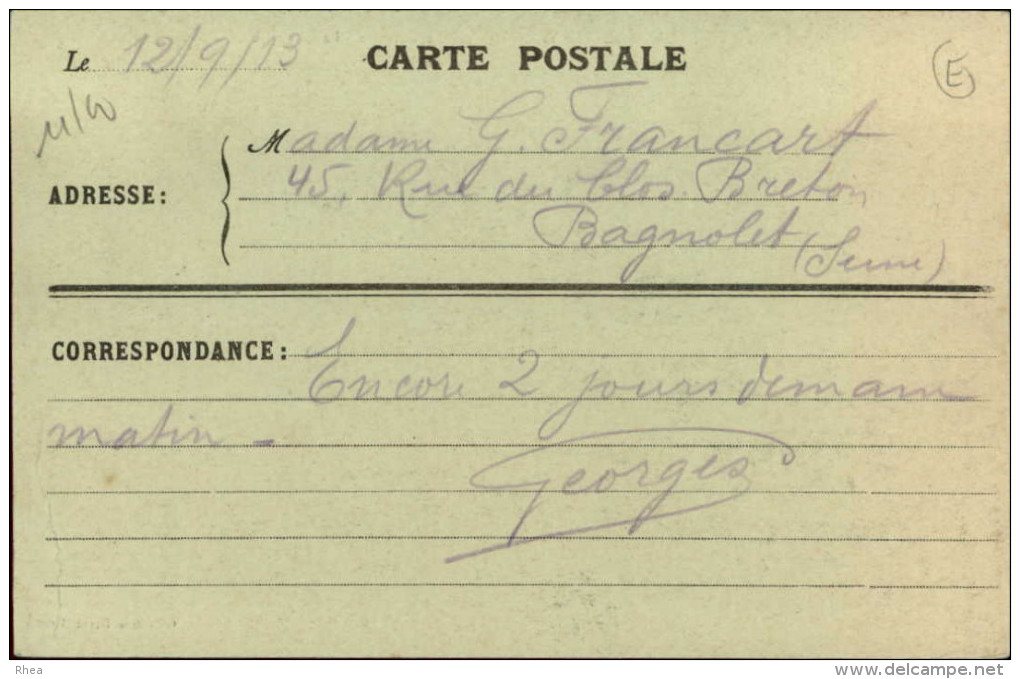 Le 12/9/13 CARTE POSTALE
E
Madame G. Francart
ADRESSE: 45, Rue du Clos Breton
Bagnolet (Seine)
CORRESPONDANCE:
Encore 2 jours demain
matin -
Georges
Rhea
www.delcampe.net